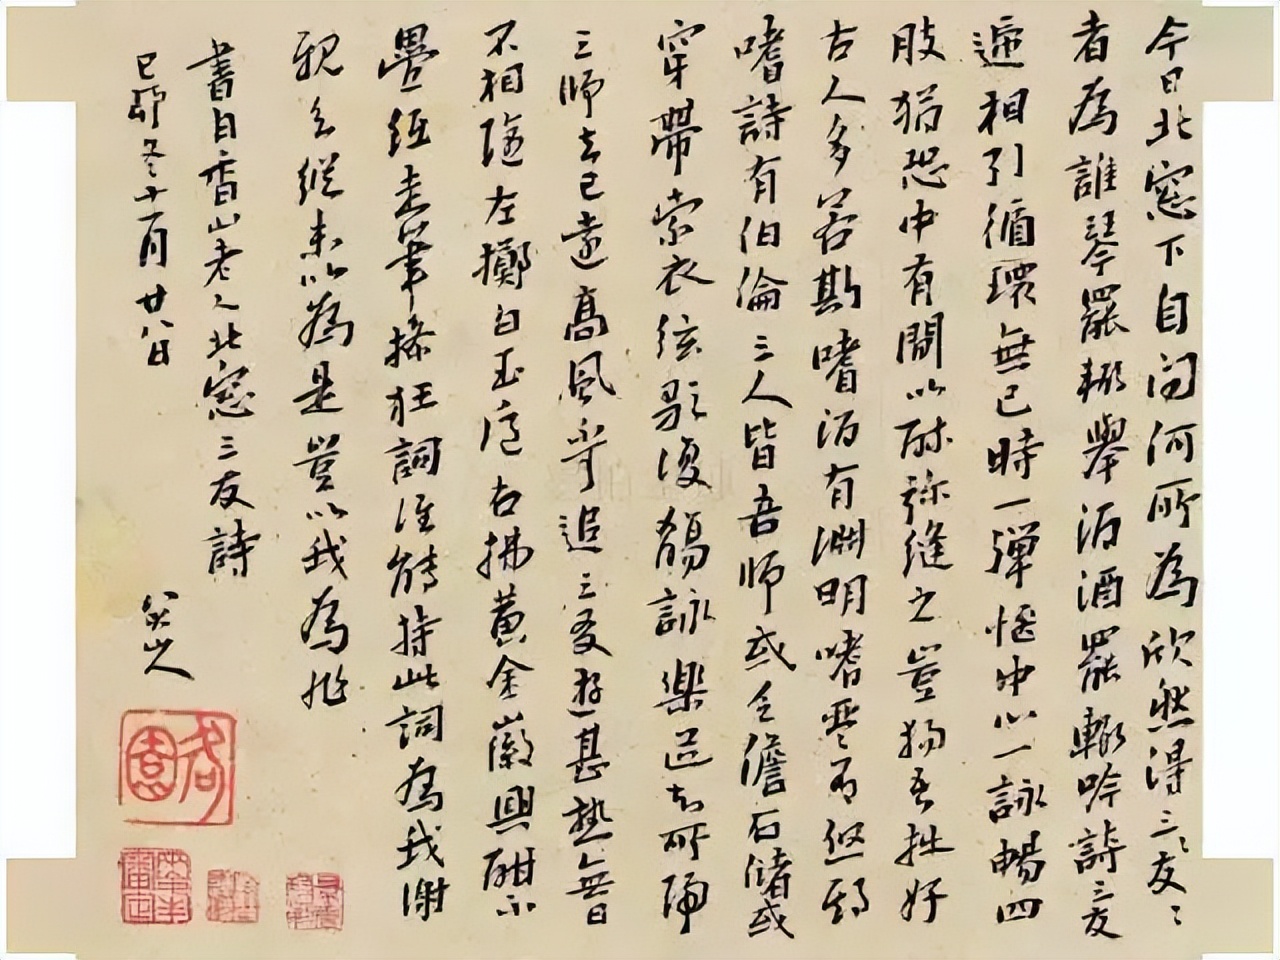 今日北窓下自问何所為欣然得三〻友〻
者為誰琴罷輙舉酒酒罷輙吟詩三友
遞相引循環無已時一彈愜中心一詠暢四
肢猶恐中有間以酔弥缝之豈獨吾拙好
古人多若斯嗜酒有淵明嗜琴有啟期
嗜詩有伯倫三人皆吾師或乏儋石儲或
穿帶索衣弦歌復觴詠樂道知所歸
三師去已遠高風不可追三友遊甚熟無日
不相隨左擲白玉巵右拂黄金徽興酣不
疊紙走筆操狂詞誰能持此詞為我謝
親友縱未以為是豈以我為非
書白香山老人北窓三友詩
己卯冬十一月廿八日
八大山人